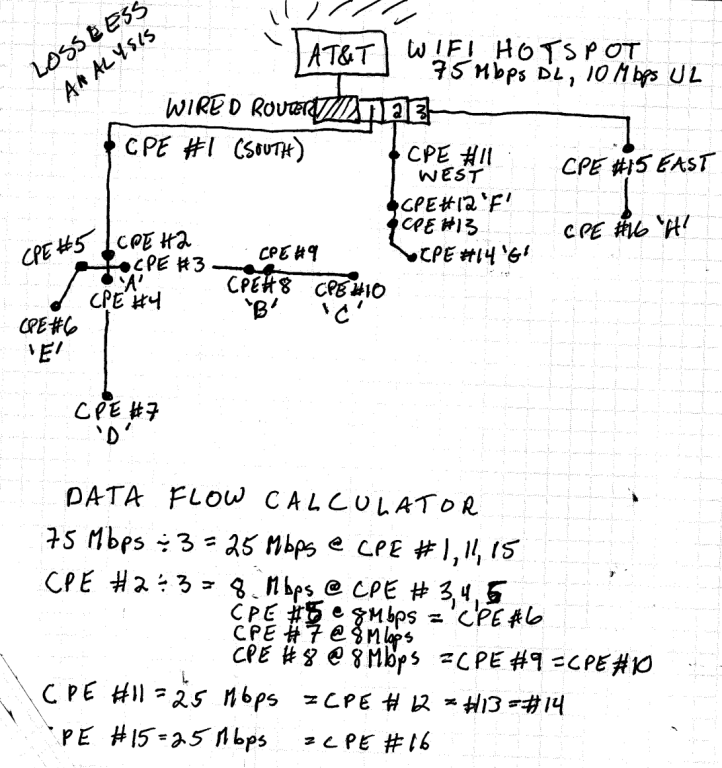 LOSSLESS
ANALYSIS
AT&T
WIFI HOTSPOT
75 Mbps DL, 10 Mbps UL
WIRED ROUTER
1 2 3
CPE #1 (SOUTH)
CPE #11
WEST
CPE #15 EAST
CPE #12 'F'
CPE #13
CPE #14 'G'
CPE #16 'H'
CPE #5
CPE #2
CPE #3
'A'
CPE #4
CPE #9
CPE #8
'B'
CPE #10
'C'
CPE #6
'E'
CPE #7
'D'
DATA FLOW CALCULATOR
75 Mbps ÷ 3 = 25 Mbps @ CPE #1, 11, 15
CPE #2 ÷ 3 = 8 Mbps @ CPE # 3, 4, 5
CPE #5 @ 8Mbps = CPE #6
CPE #7 @ 8Mbps
CPE #8 @ 8Mbps = CPE #9 = CPE #10
CPE #11 = 25 Mbps = CPE # 12 = #13 = #14
PE #15 = 25 Mbps = CPE #16